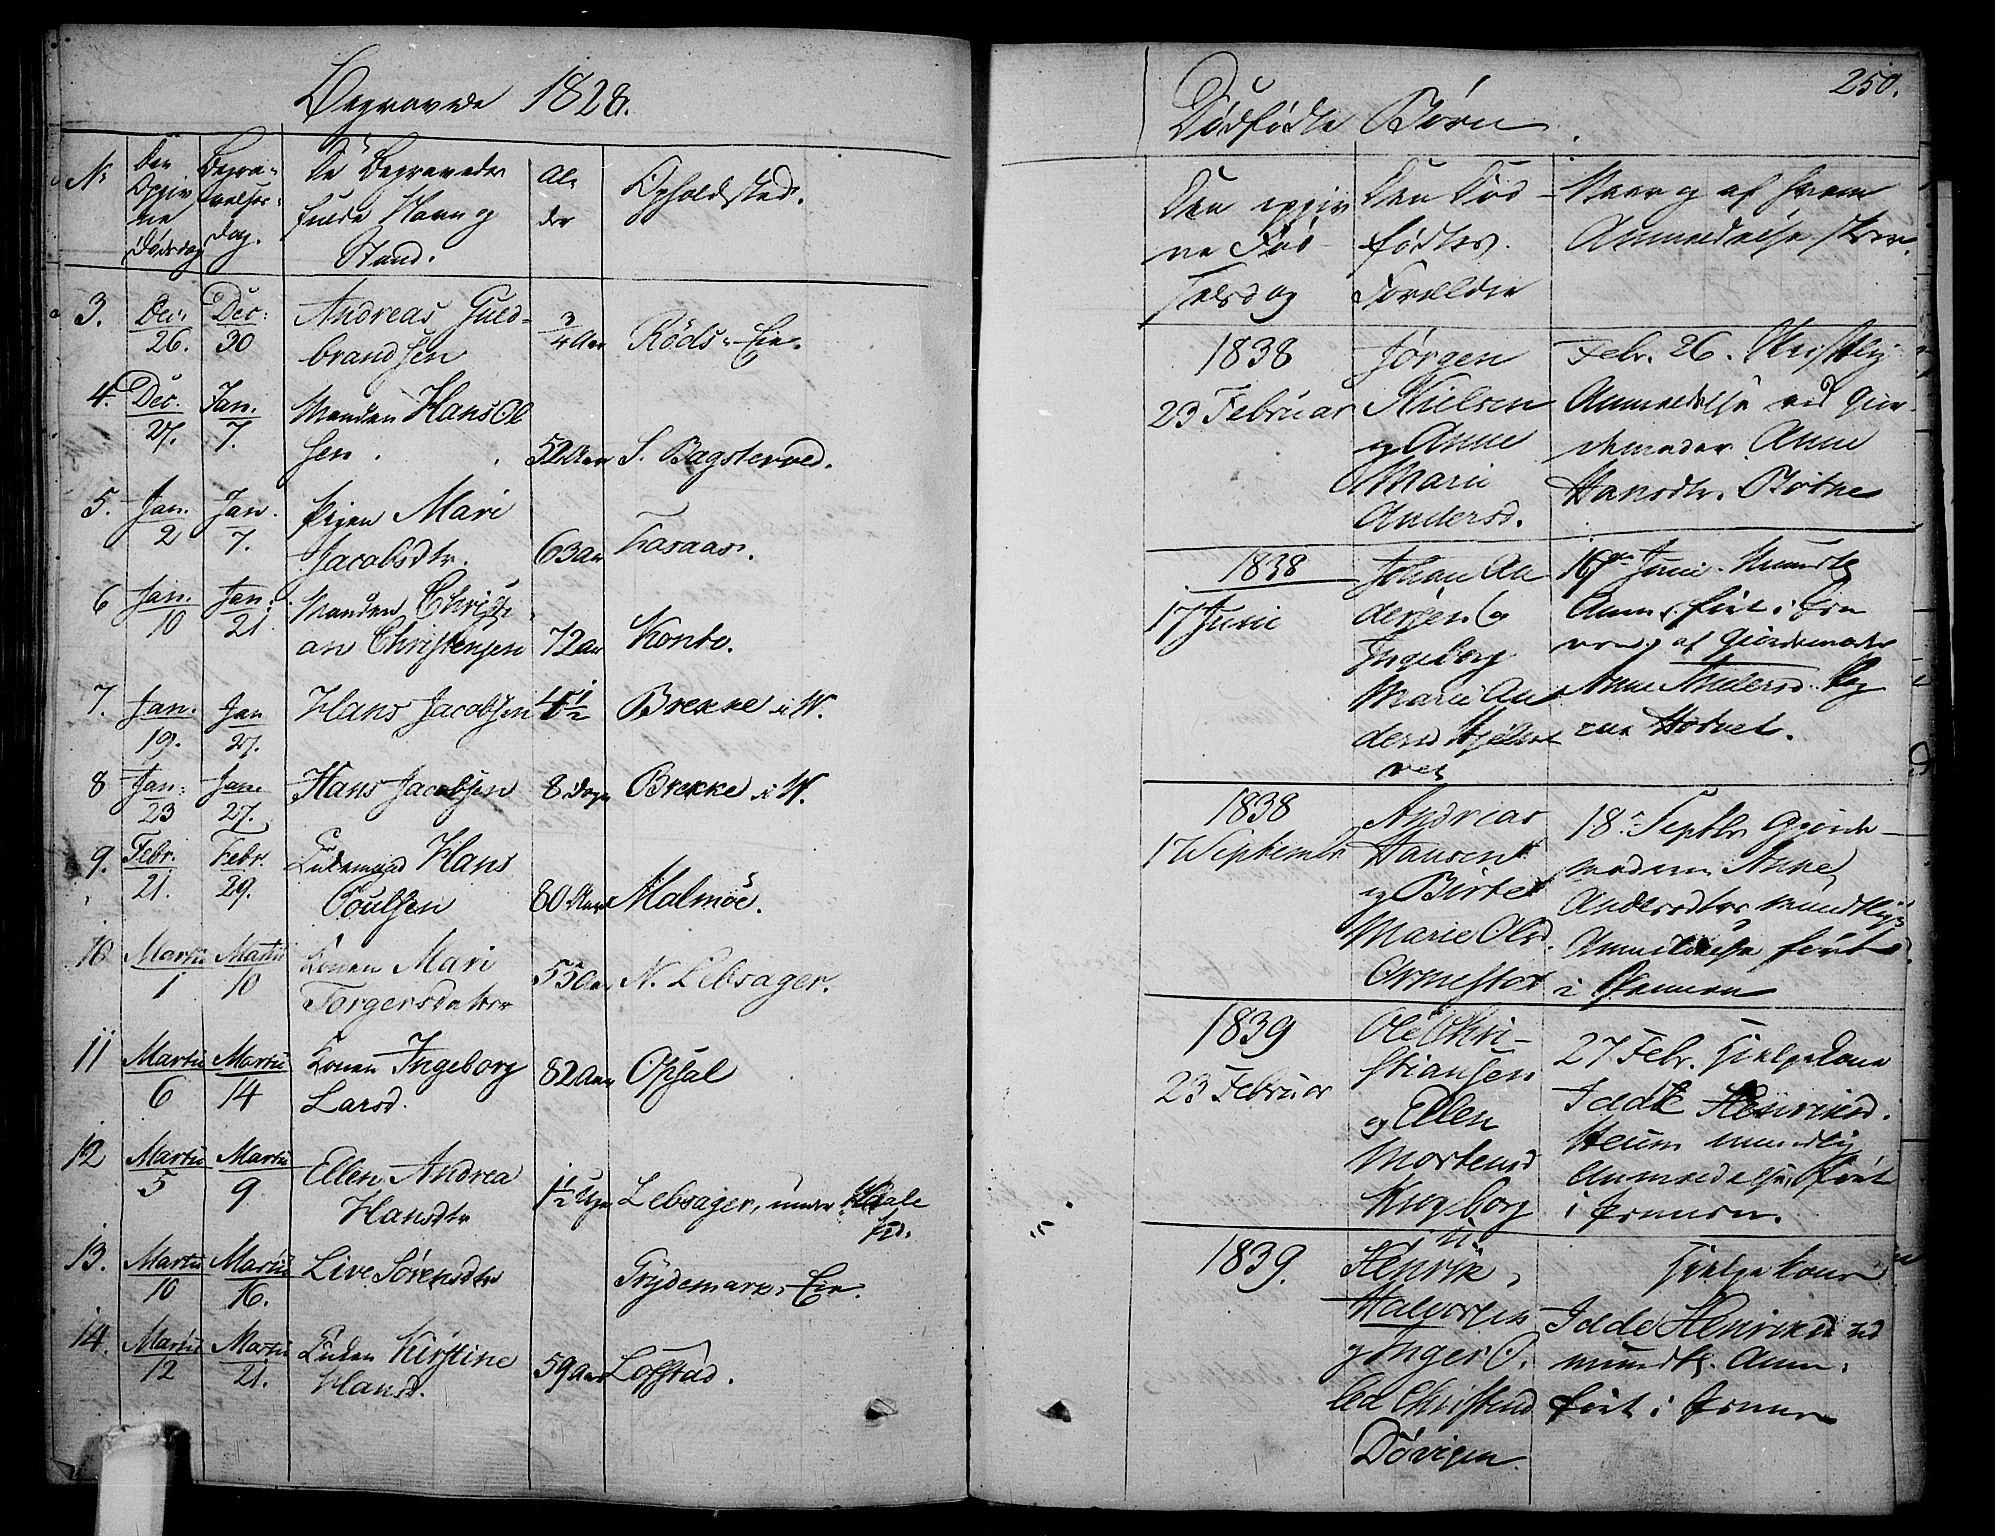 Begravede 1828.
No
Den Opgivne Dødsdag
Begravelsesdag.
De Begravedes fulde Navn og Stand.
Alder
Opholdsted.
3. Dec. 26. Dec. 30 Andreas Guldbrandsen 3/4 Aar Röds-Eie.
4. Dec. 27. Jan. 7. Manden Hans Olsen. 52 Aar S. Bagsterved.
5. Jan. 2 Jan. 7. Pigen Mari Jacobsdtr. 63 Aar Taraas.
6 Jan. 10 Jan. 21. Manden Christian Christensen 72 Aar Konto.
7. Jan. 19. Jan 27. Hans Jacobsen Brekke i W.
8 Jan. 23 Jan. 27. Hans Jacobsen 8 Dage Brekke i W.
9. Febr. 21. Febr. 29. Hans Poulsen 80 Aar Malmöe.
10 Martii 1 Martii 10 Konen Mari Torgersdatter 55 Aar N. Lebsager.
11 Martii 6 Martii 14 Konen Ingeborg Larsd. 82 Aar Opsal
12 Martii 5 Martii 9 Ellen Andrea Hansdtr 1½ Uge Lebsager, under
13. Martii 10 Martii 16. Live Sörensdtr Prydemark-Eie.
14. Martii 12 Martii 21. Kirstine Hansd. 59 Aar Lofstad.
250.
Dödfödte Börn.
Den opgivne Födselsdag
Den Dödfödtes Forældre
Naar og af hvem Anmeldelse skeer.
1838
23 Februar
Jörgen
Nielsen
og Anne
Marie
Andersd.
Febr. 26. Skriftlig
Anmeldelse ved Gjordemoder Anne
Hansdtr. Böthne
1838
17 Juni
Johan Andersen og
Ingeborg
Marie Andersd
Juni. Mundtlig
Anm. ført i
af Gjordemoder
Anne Andersd.
1838
17 September
Andreas
Hansen
og Birte
Marie Olsd.
Ormestad
18. Septbr Gjordemoderen Anne
Andersdtrs mundtlige
Anmeldelse ført
i
1839
23 Februar
Ole Christiansen
og Ellen
Mortensd
27 Febr. Hjelpekone
Idde Henriksd.
mundtlig
Anmeldelse, ført
i
1839.
Henrik
Halvorsen
og Inger O.
lea Christensd
Dövigen
Hjelpekone
Idde Henriksd ved
mundtl. Anm.
ført i